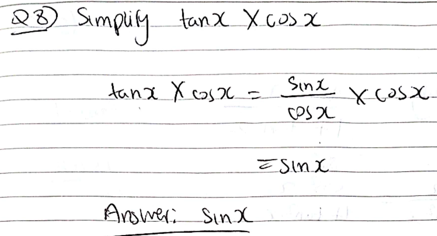 Q8) Simplify tanx X cosx
tanx X cosx = sinx/cosx X cosx
= sinx
Answer: sinx